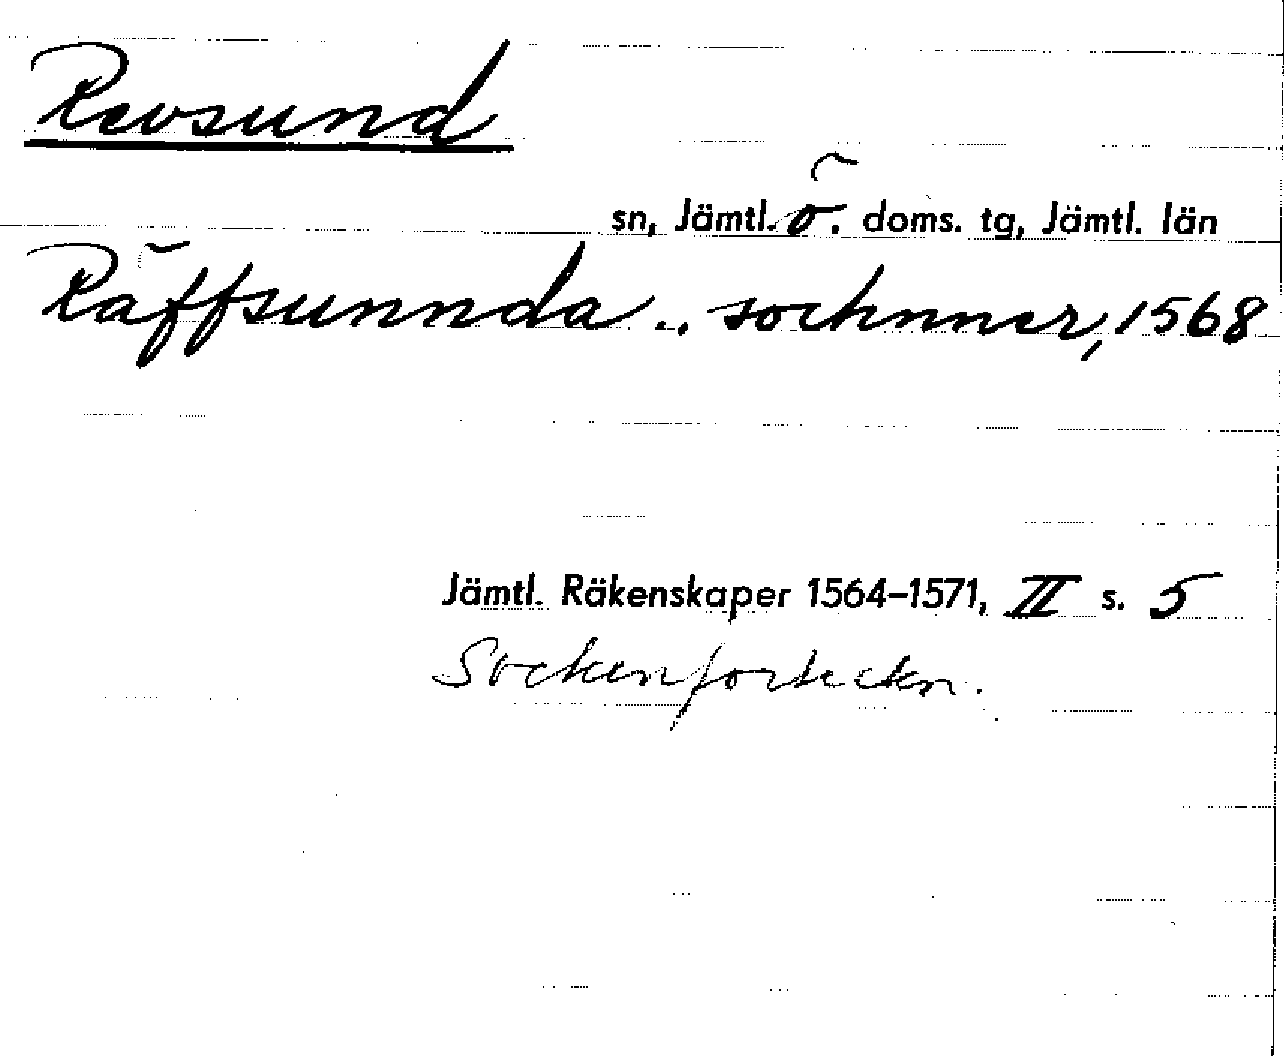 Revsund
sn, Jämtl. ö. doms. tg, Jämtl. län
Räffsunnda .. sochnner, 1568
Jämtl. Räkenskaper 1564–1571, II s. 5
Sockenforteckn.